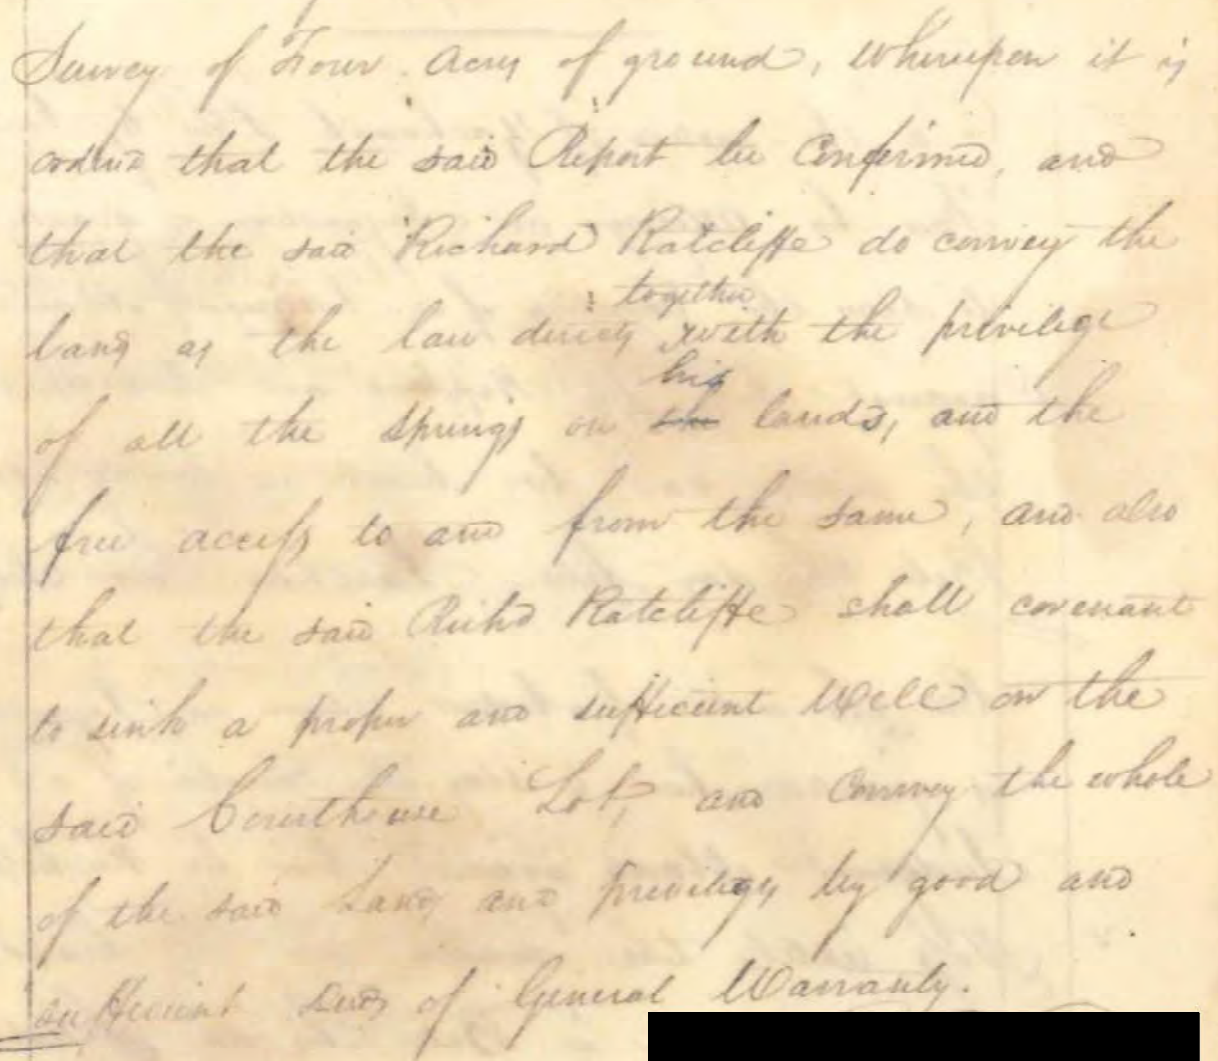 Survey of Four Acres of ground, Whereupon it is
ordered that the said Report be Confirmed, and
that the said Richard Ratcliffe do convey the
together
lands as the law directs with the privilege
his
of all the Springs on the lands, and the
free access to and from the same, and also
that the said Richd Ratcliffe shall covenant
to sink a proper and sufficient Well on the
said Courthouse Lot, and Convey the whole
of the said Lands and priviliges by good and
sufficient Deeds of General Warranty.